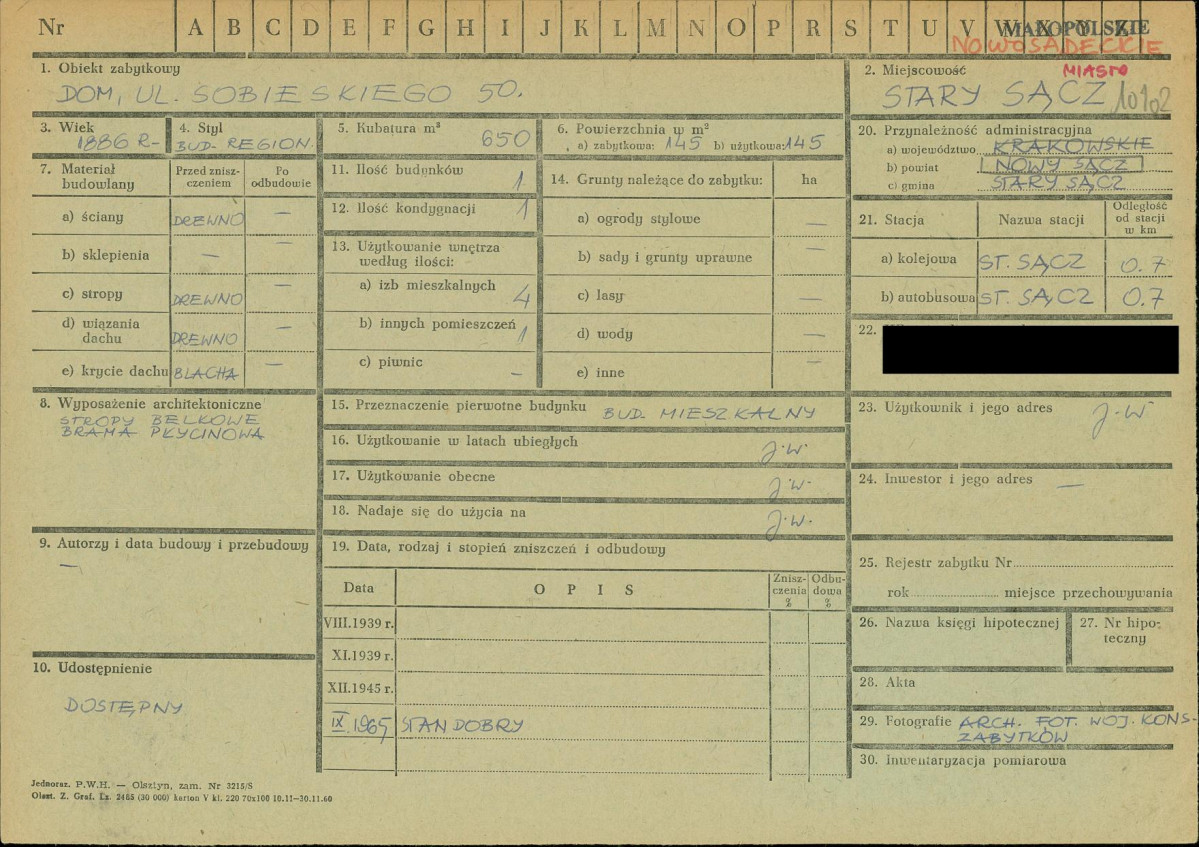 Nr A B C D E F G H I J K L M N O P R S T U V W X Y Z
MAŁOPOLSKIE
NOWOSĄDECKIE
1. Obiekt zabytkowy
DOM, UL. SOBIESKIEGO 50.
2. Miejscowość
MIASTO
STARY SĄCZ 10102
3. Wiek
1886 R-
4. Styl
BUD. REGION.
5. Kubatura m³
650
6. Powierzchnia w m²
a) zabytkowa: 145 b) użytkowa: 145
7. Materiał budowlany
Przed znisz-
czeniem
Po
odbudowie
a) ściany DREWNO —
b) sklepienia — —
c) stropy DREWNO —
d) wiązania
dachu DREWNO —
e) krycie dachu BLACHA —
8. Wyposażenie architektoniczne
STROPY BELKOWE
BRAMA PŁYCINOWA
9. Autorzy i data budowy i przebudowy
—
10. Udostępnienie
DOSTĘPNY
11. Ilość budynków
1
12. Ilość kondygnacji 1
13. Użytkowanie wnętrza
według ilości:
a) izb mieszkalnych
4
b) innych pomieszczeń
1
c) piwnic
–
14. Grunty należące do zabytku: ha
a) ogrody stylowe —
b) sady i grunty uprawne —
c) lasy —
d) wody —
e) inne —
15. Przeznaczenie pierwotne budynku BUD. MIESZKALNY
16. Użytkowanie w latach ubiegłych
J.W.
17. Użytkowanie obecne
J.W.
18. Nadaje się do użycia na
J.W.
19. Data, rodzaj i stopień zniszczeń i odbudowy
Data OPIS
Znisz-
czenia
%
Odbu-
dowa
%
VIII.1939 r.
XI.1939 r.
XII.1945 r.
IX.1965 STAN DOBRY
20. Przynależność administracyjna
a) województwo KRAKOWSKIE
b) powiat NOWY SĄCZ
c) gmina STARY SĄCZ
21. Stacja Nazwa stacji
Odległość
od stacji
w km
a) kolejowa ST. SĄCZ 0.7
b) autobusowa ST. SĄCZ 0.7
22.
23. Użytkownik i jego adres J.W
24. Inwestor i jego adres —
25. Rejestr zabytku Nr
rok miejsce przechowywania
26. Nazwa księgi hipotecznej
27. Nr hipo-
teczny
28. Akta
29. Fotografie ARCH. FOT. WOJ. KONS-
ZABYTKÓW
30. Inwentaryzacja pomiarowa
Jednoraz. P.W.H. — Olsztyn, zam. Nr 3215/S
Olszt. Z. Graf. Lz. 2465 (30 000) karton V kl. 220 70x100 10.11—30.11.60